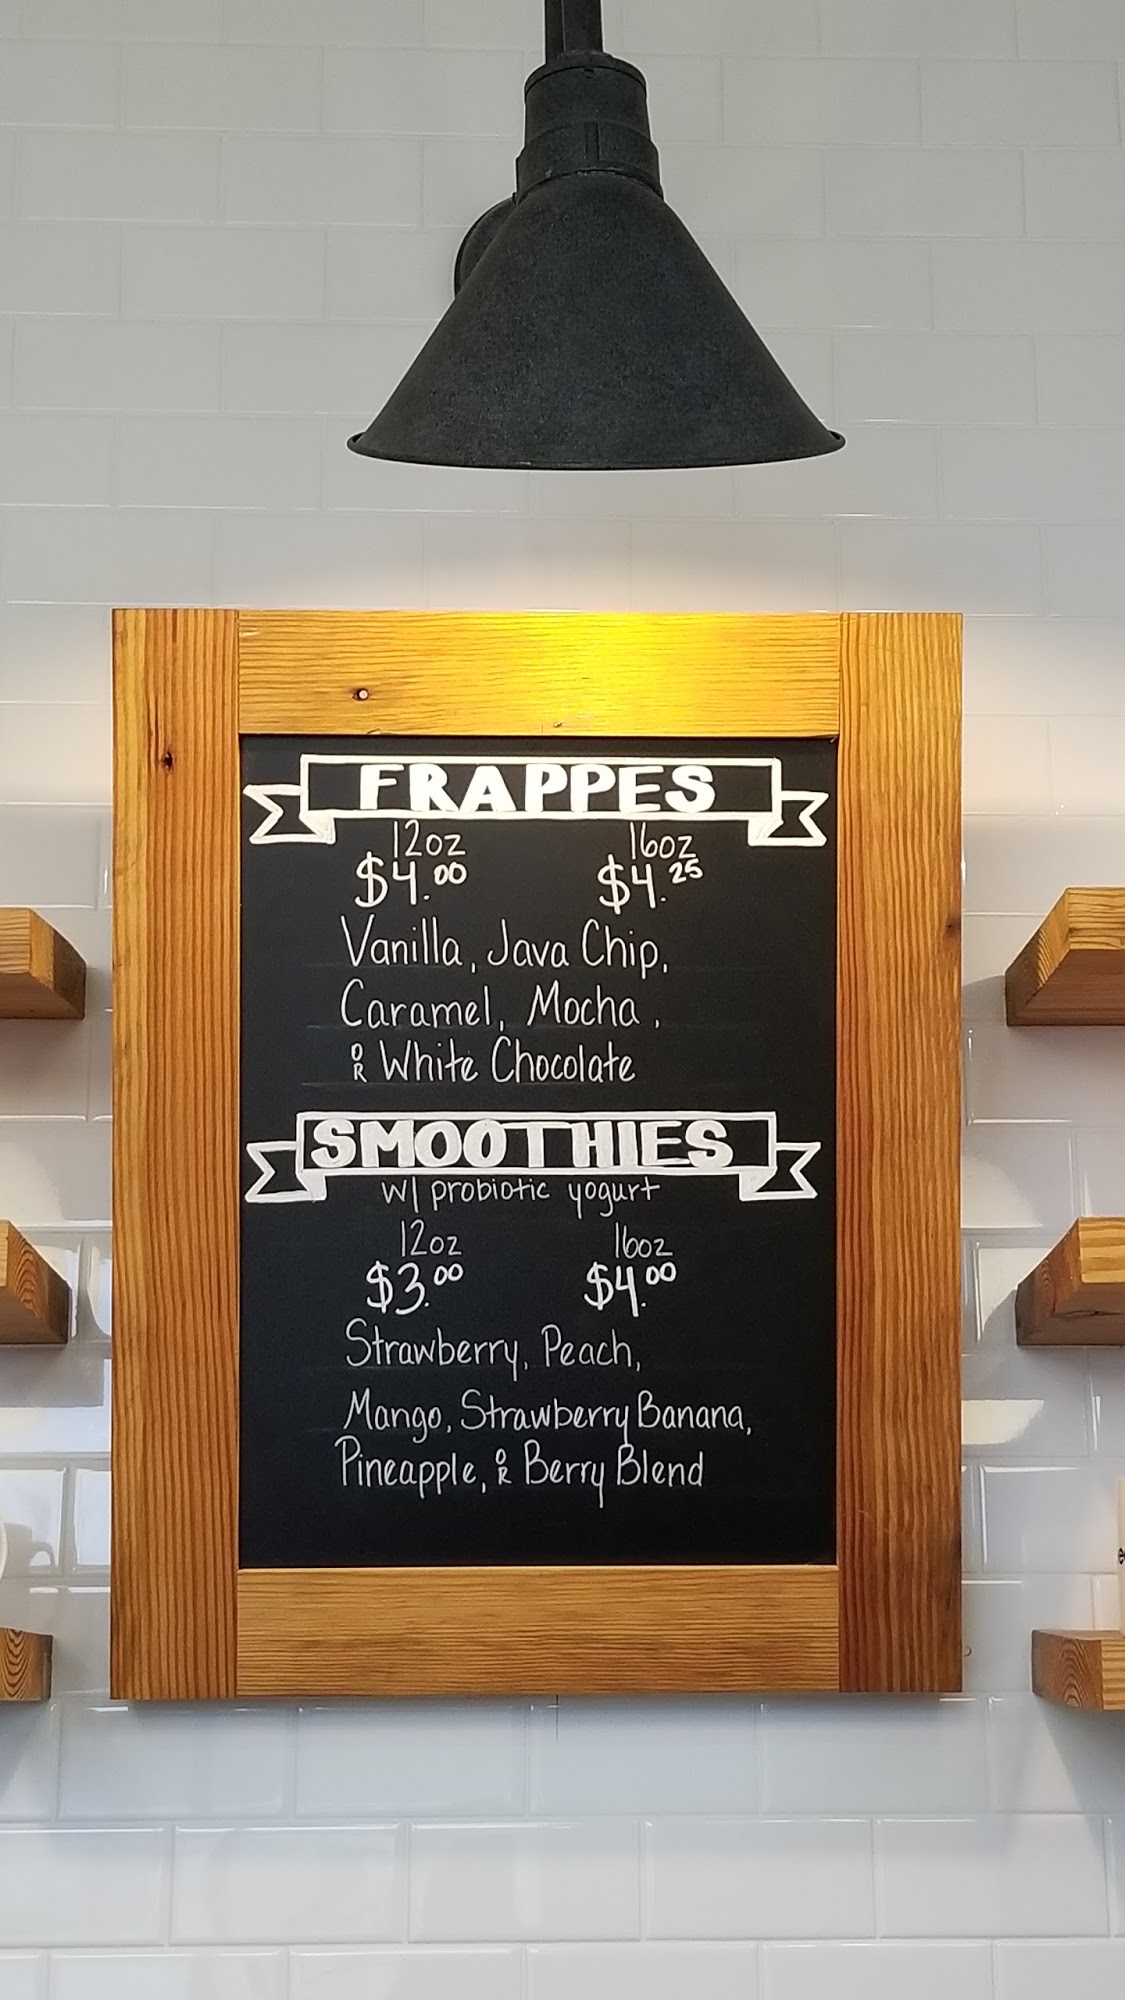 FRAPPES
12oz 16oz
$4.00 $4.25
Vanilla, Java Chip,
Caramel, Mocha,
OR White Chocolate
SMOOTHIES
w/ probiotic yogurt
12oz 16oz
$3.00 $4.00
Strawberry, Peach,
Mango, Strawberry Banana,
Pineapple, OR Berry Blend